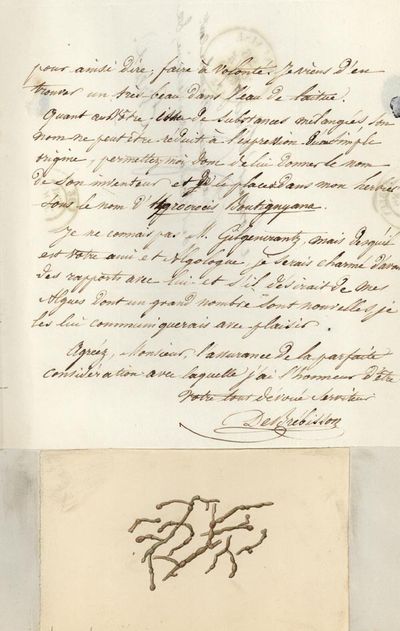 pour ainsi dire, faire à volonté. Je viens d'en
trouver un très beau dans l'eau de laitue.
Quant au vôtre de substances mélangées, son
nom ne peut être réduit à l'expression simple
origine, permettez moi donc de lui donner le nom
de son inventeur, et je le place dans mon herbier
sous le nom d'Hygrocrocis Boutignyana.
Je ne connais pas M. mais puisqu'il
est votre ami et Algologue, je serais charmé d'avoir
des rapports avec lui et s'il désirait de mes
Algues dont un grand nombre sont nouvelles je
les lui communiquerais avec plaisir.
Agréez, Monsieur, l'assurance de la parfaite
considération avec laquelle j'ai l'honneur d'être
votre tout dévoué serviteur
De Brébisson